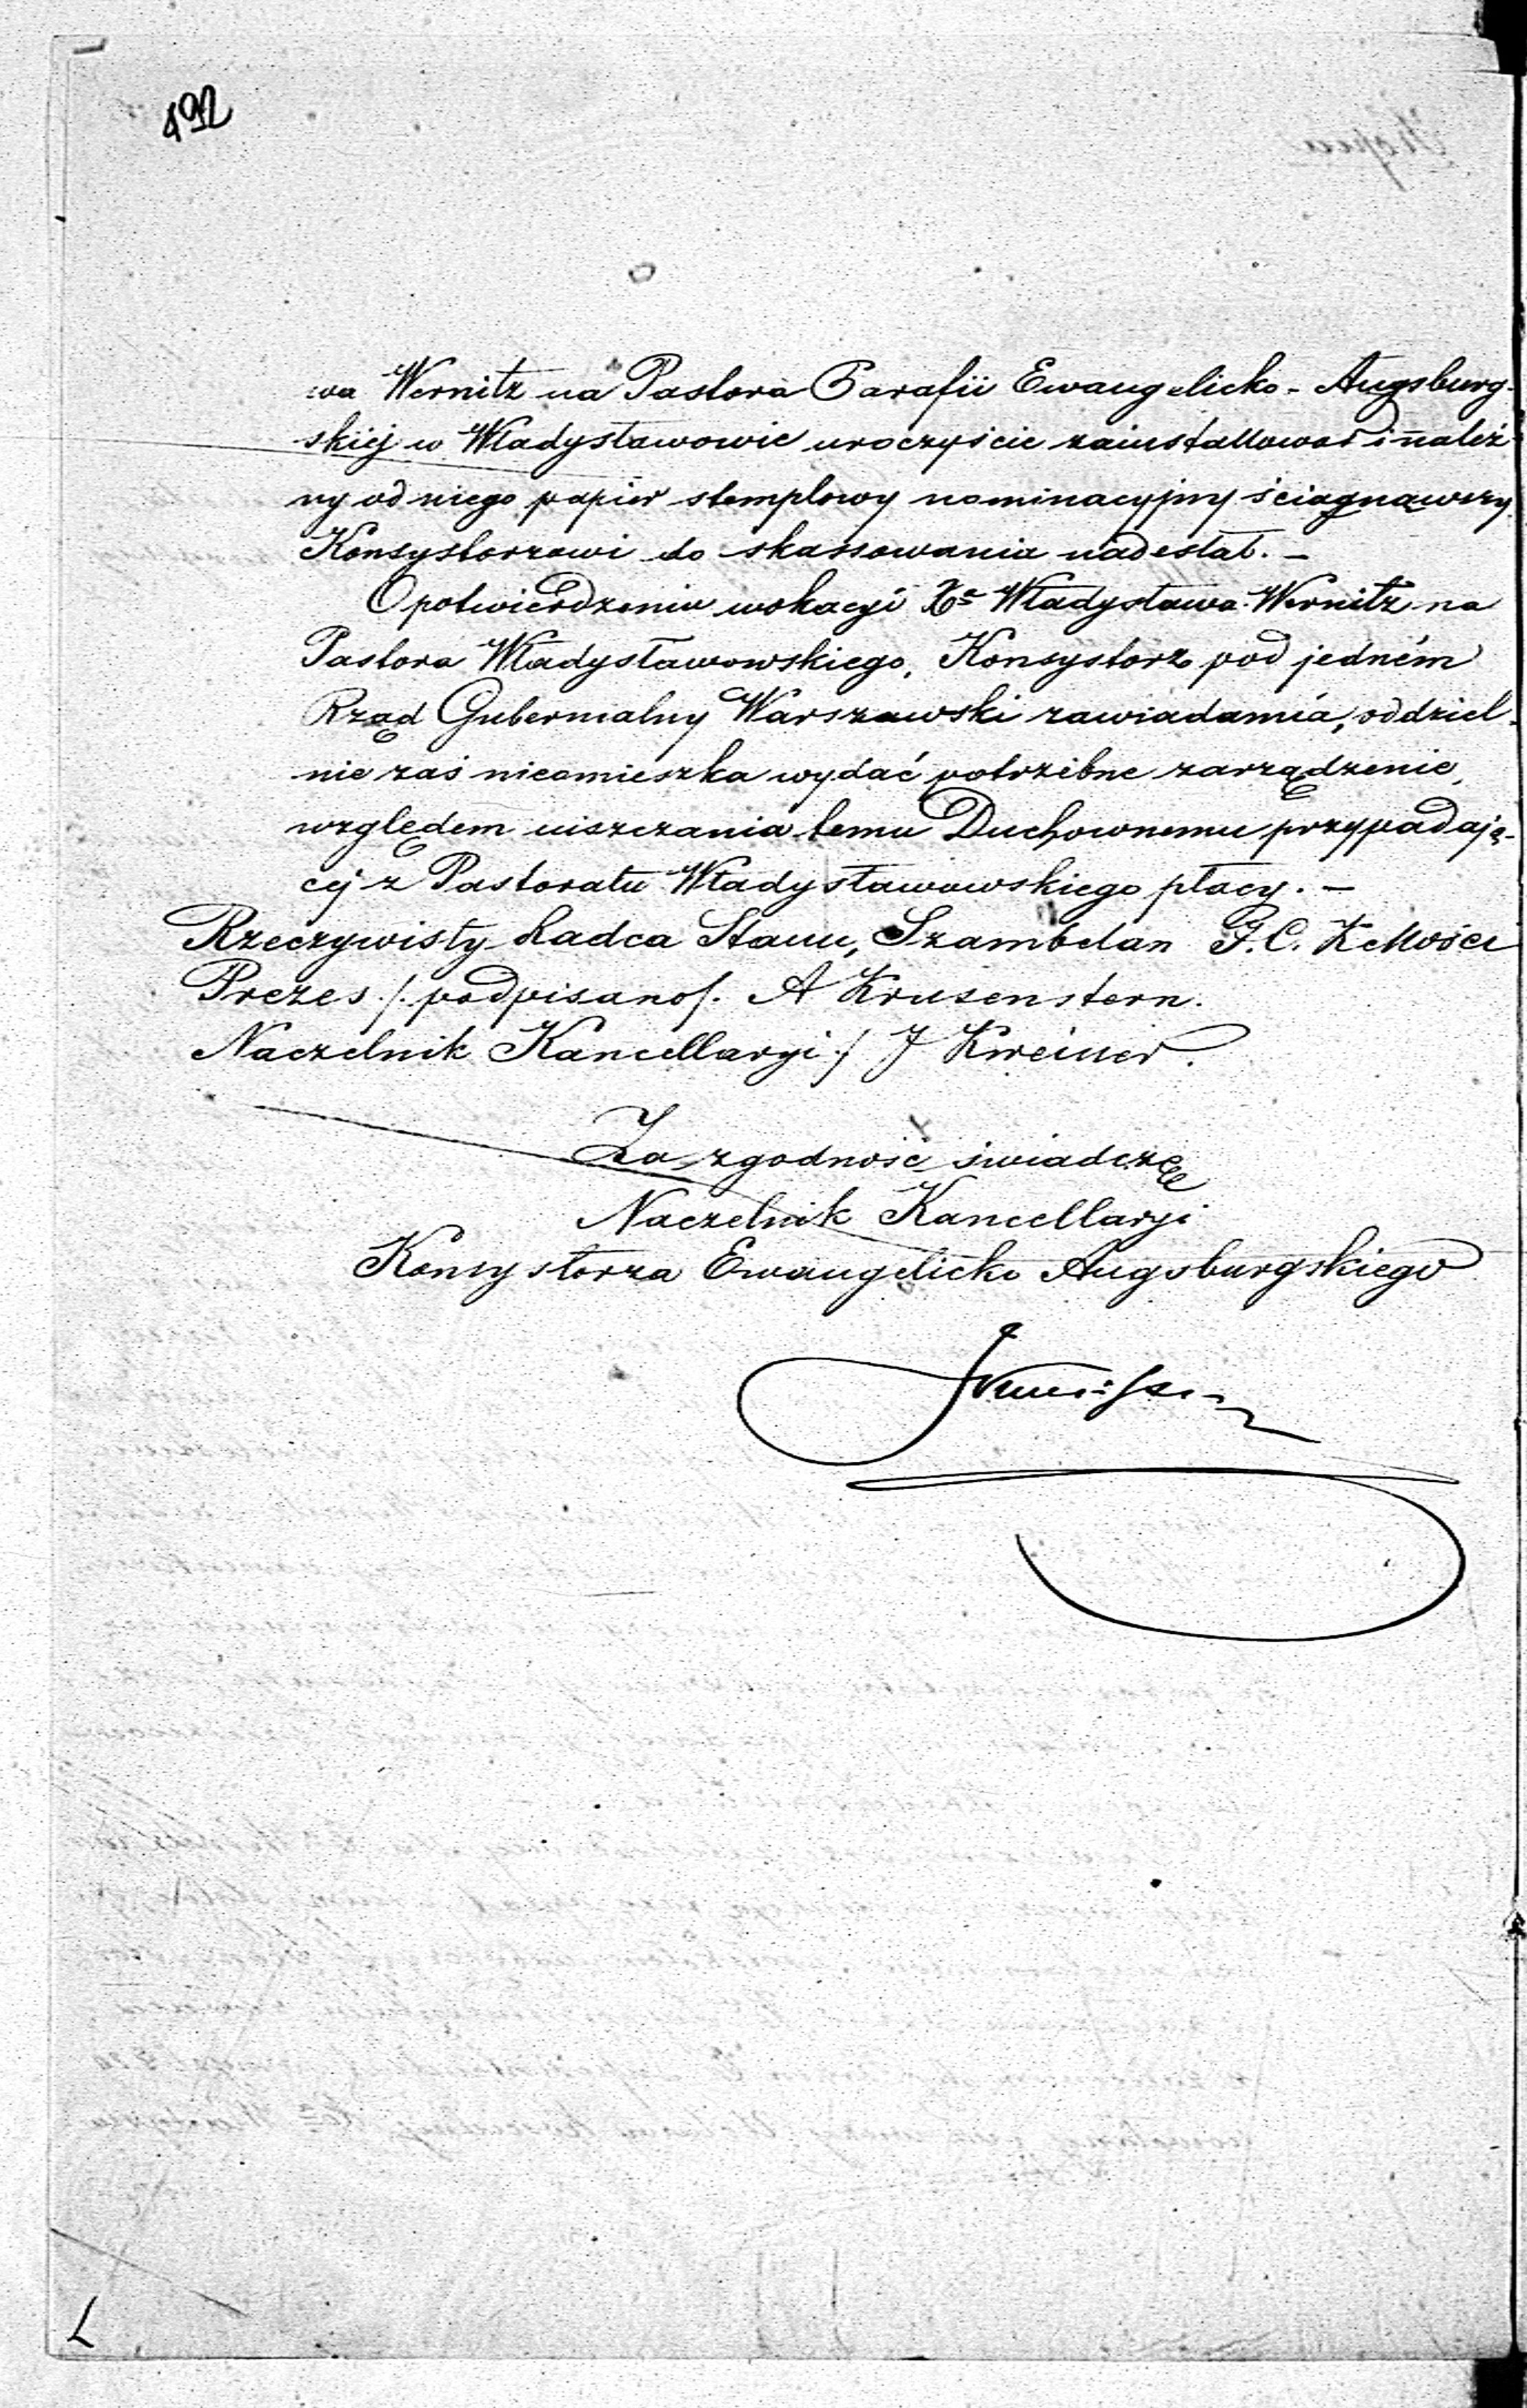 492
wa Wernitz na Pastora Parafii Ewangelicko-Augsburg-
skiéj w Władysławowie uroczyście zainstallował i należ-
ny od niego papier stemplowy nominacyjny ściągnąwszy
Konsystorzowi do skassowania nadesłał. —
O potwierdzeniu wokacyi Xa Władysława Wernitz na
Pastora Władysławowskiego, Konsystorz pod jedném
Rząd Gubernialny Warszawski zawiadamia, oddziel-
nie zaś nieomieszka wydać potrzebne zarządzenie,
względem uiszczania temu Duchownemu przypadają-
cej z Pastoratu Władysławowskiego płacy. —
Rzeczywisty Radca Stanu, Szambelan J. C. K Mości
Prezes /. podpisano /. A Krusenstern.
Naczelnik Kancellaryi / J
Za zgodność świadczę
Naczelnik Kancellaryi
Konsystorza Ewangelicko Augsburgskiego